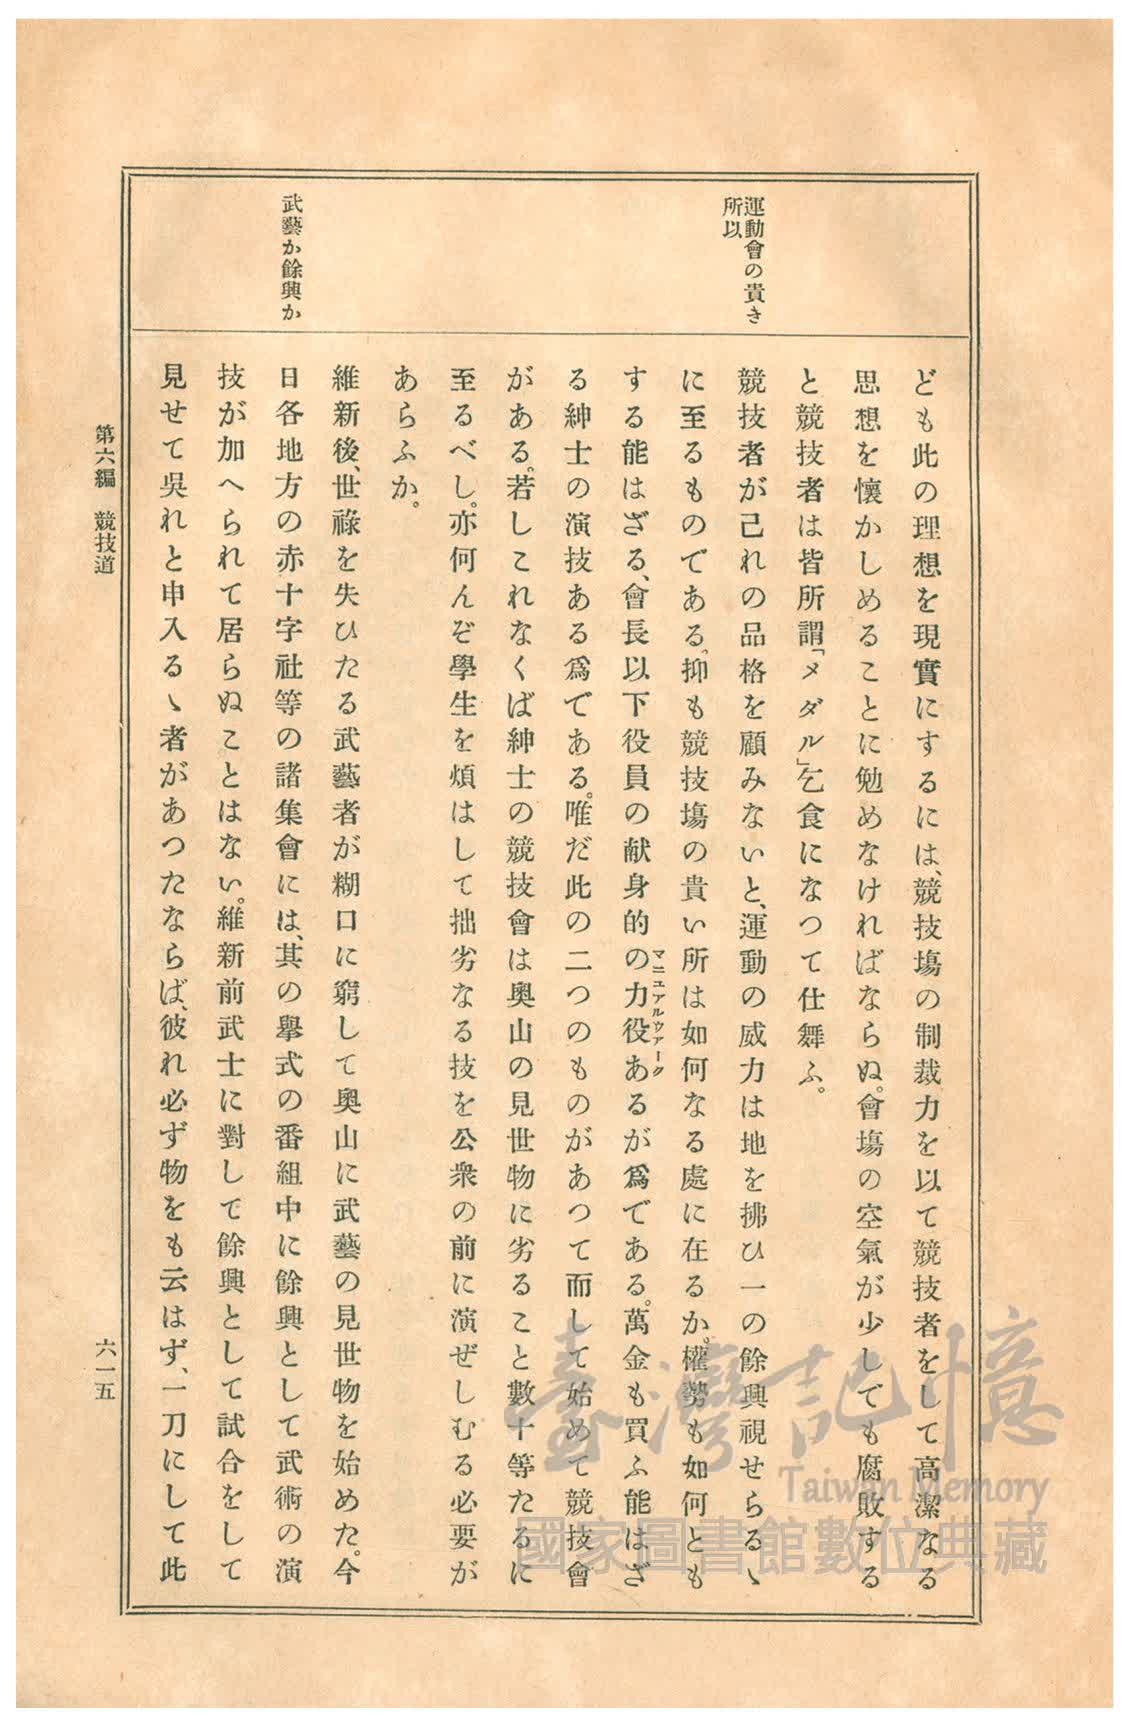 運動會の貴き
所以
武藝か餘興か
ども此の理想を現實にするには、競技塲の制裁力を以て競技者をして高潔なる
思想を懷かしめることに勉めなければならぬ。會塲の空氣が少しても腐敗する
と競技者は皆所謂「メダル」乞食になつて仕舞ふ。
競技者が己れの品格を顧みないと、運動の威力は地を拂ひ一の餘興視せらるゝ
に至るものである。抑も競技塲の貴い所は如何なる處に在るか。權勢も如何とも
する能はざる、會長以下役員の献身的の力役あるが爲である。萬金も買ふ能はざ
マニユアルウアーク
る紳士の演技ある爲である。唯だ此の二つのものがあつて而して始めて競技會
がある。若しこれなくば紳士の競技會は奥山の見世物に劣ること數十等たるに
至るべし。亦何んぞ學生を煩はして拙劣なる技を公衆の前に演ぜしむる必要が
あらふか。
維新後、世祿を失ひたる武藝者が糊口に窮して奥山に武藝の見世物を始めた。今
日各地方の赤十字社等の諸集會には、其の擧式の番組中に餘興として武術の演
技が加へられて居らぬことはない。維新前武士に對して餘興として試合をして
見せて吳れと申入るゝ者があつたならば、彼れ必ず物をも云はず、一刀にして此
第六編　競技道
六一五
臺灣記憶
Taiwan Memory
國家圖書館數位典藏